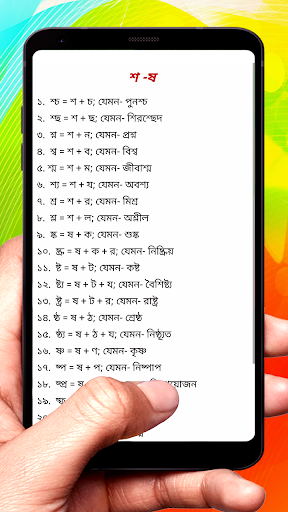 শ -ষ
১. শ্চ = শ + চ; যেমন- পুনশ্চ
২. শ্ছ = শ + ছ; যেমন- শিরশ্ছেদ
৩. শ্ন = শ + ন; যেমন- প্রশ্ন
৪. শ্ব = শ + ব; যেমন- বিশ্ব
৫. শ্ম = শ + ম; যেমন- জীবাশ্ম
৬. শ্য = শ + য; যেমন- অবশ্য
৭. শ্র = শ + র; যেমন- মিশ্র
৮. শ্ল = শ + ল; যেমন- অশ্লীল
৯. ষ্ক = ষ + ক; যেমন- শুষ্ক
১০. ষ্ক্র = ষ + ক + র; যেমন- নিষ্ক্রিয়
১১. ষ্ট = ষ + ট; যেমন- কষ্ট
১২. ষ্ট্য = ষ + ট + য; যেমন- বৈশিষ্ট্য
১৩. ষ্ট্র = ষ + ট + র; যেমন- রাষ্ট্র
১৪. ষ্ঠ = ষ + ঠ; যেমন- শ্রেষ্ঠ
১৫. ষ্ঠ্য = ষ + ঠ + য; যেমন- নিষ্ঠ্যূত
১৬. ষ্ণ = ষ + ণ; যেমন- কৃষ্ণ
১৭. ষ্প = ষ + প; যেমন- নিষ্পাপ
১৮. ষ্প্র = ষ + প
১৯. ষ্ফ